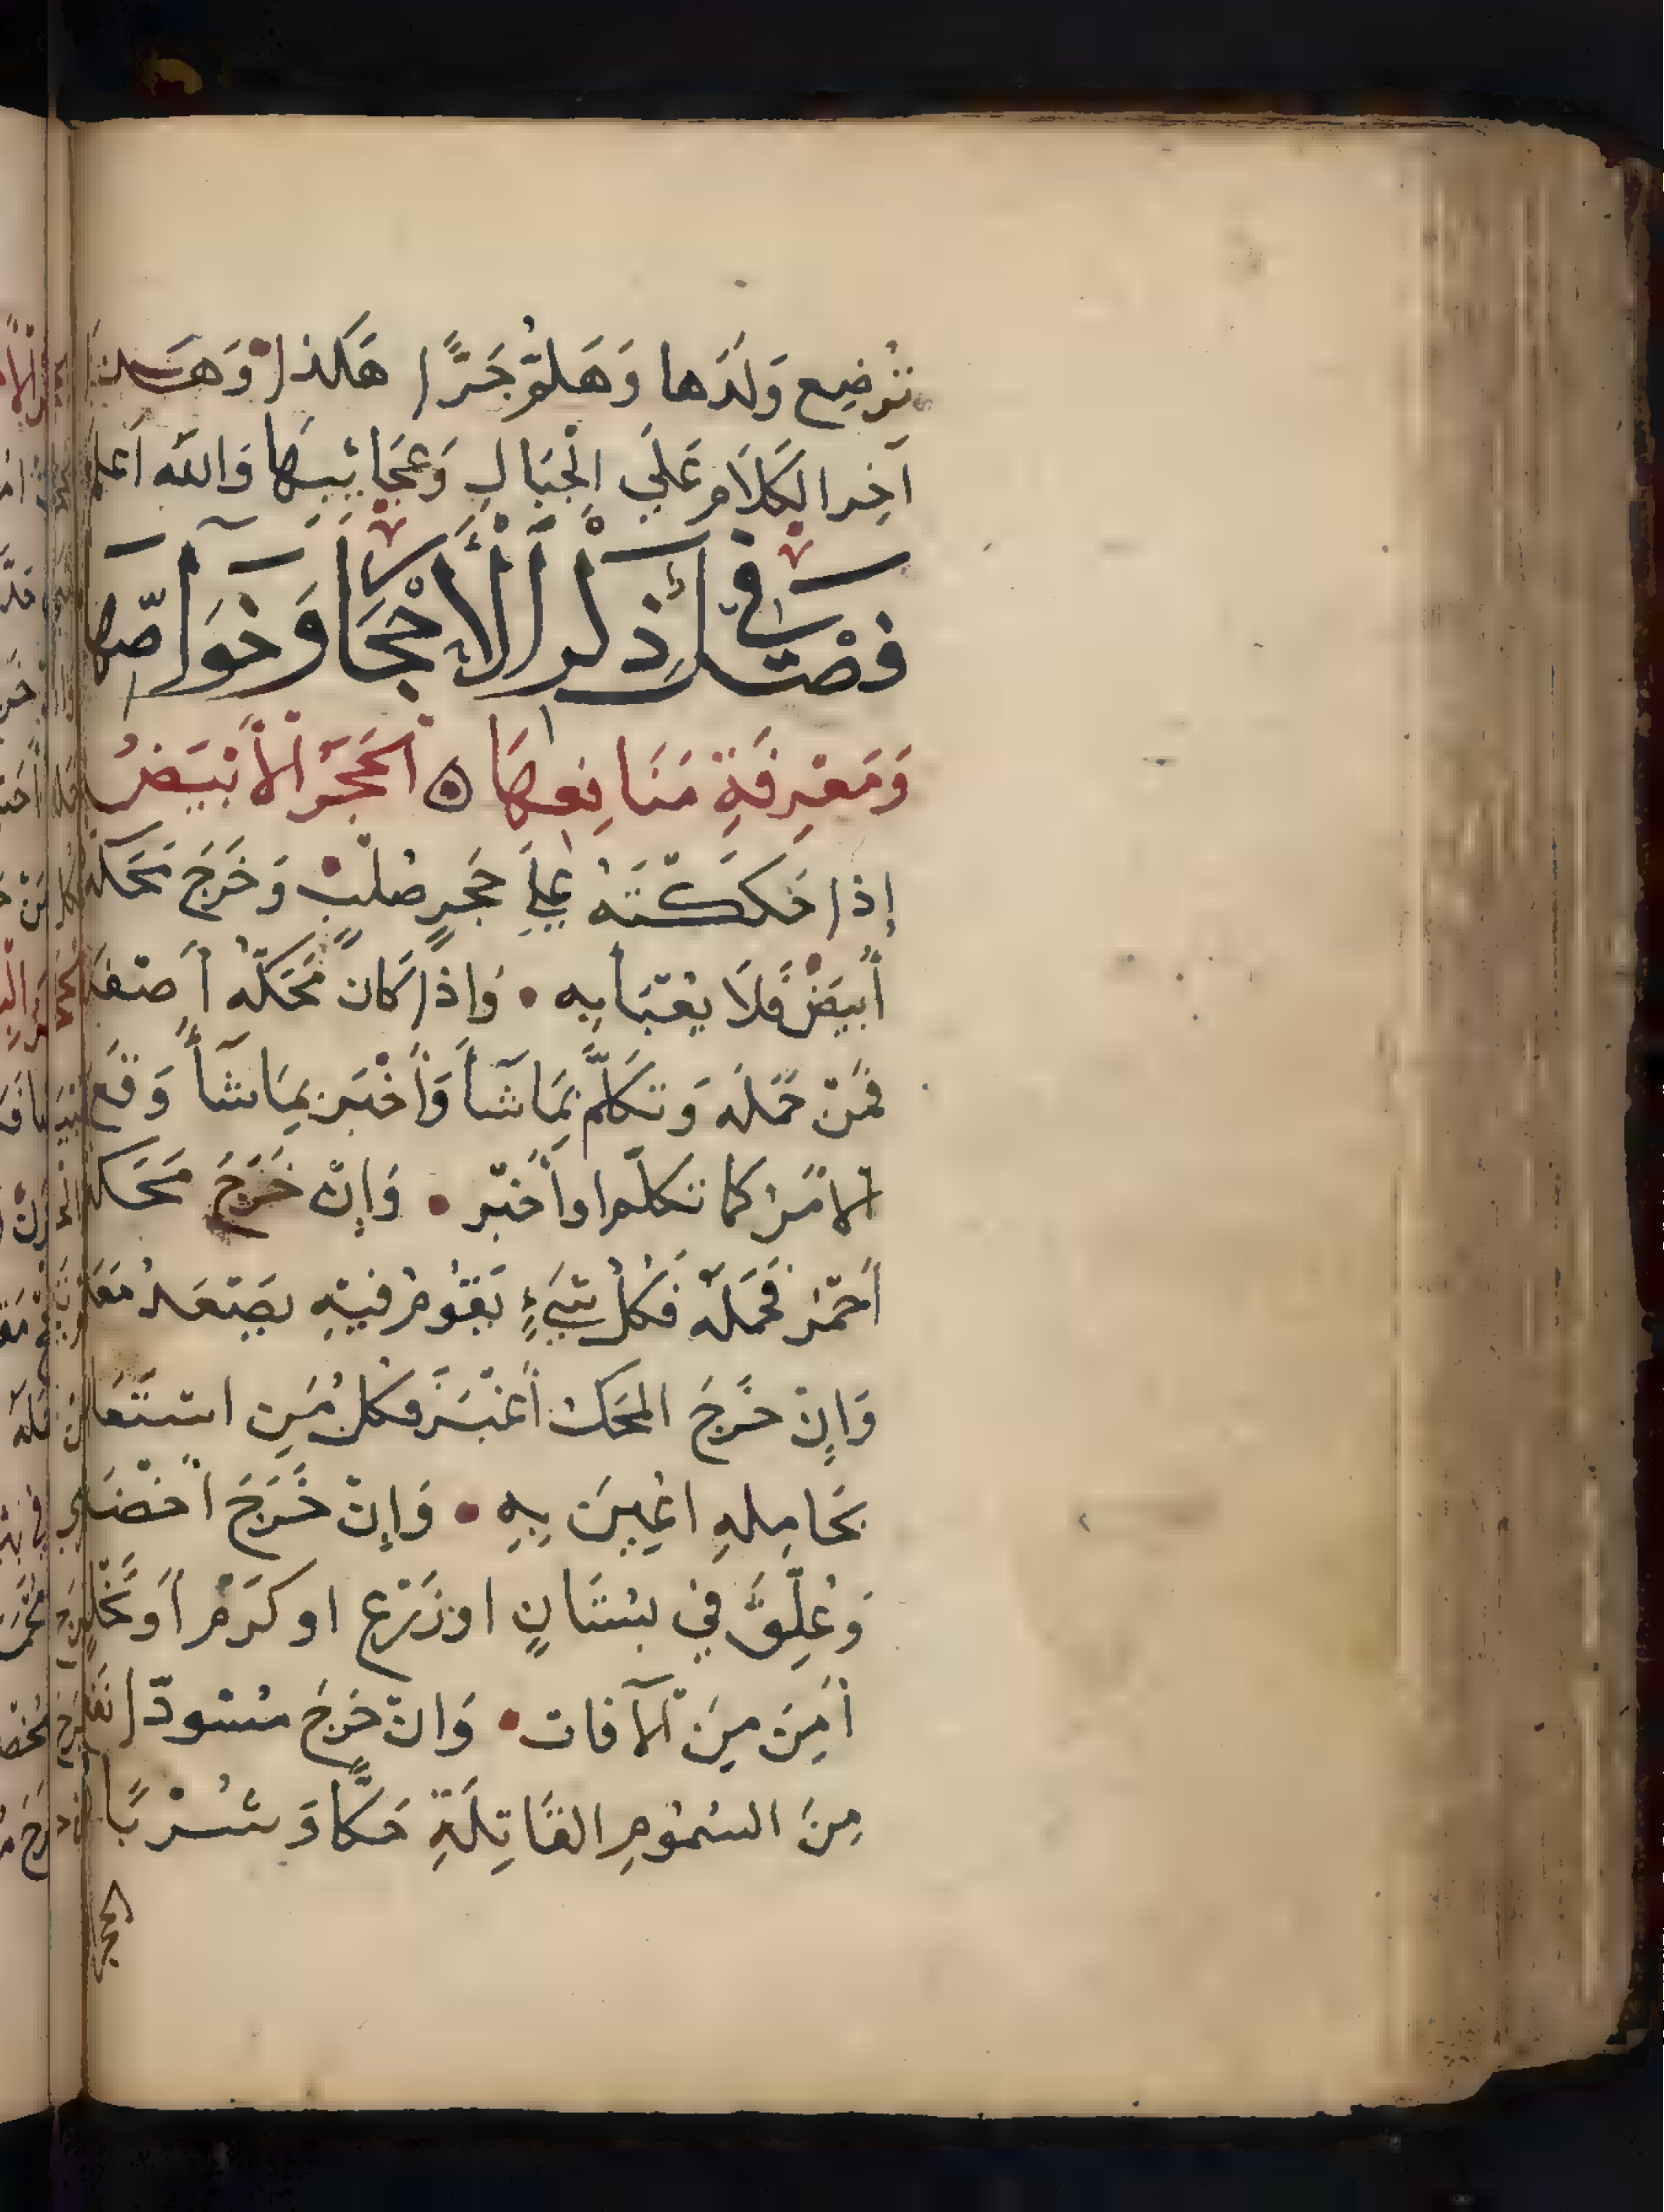 تُرضِيع وَلَدَها وَهَلُمَّ جَرًّا هَكذا وَهَكذا
آخِر الكَلَام عَلَى الْجِبَالِ وَعَجَائِبِهَا وَالله أَعْلَم
فَصْل في ذِكْر الْأَحْجَار وَخَوَاصِّهَا
وَمَعْرِفَةِ مَنَافِعِهَا ه الحَجَرُ الْأَبْيَضُ
إِذا حَكَكْتَهُ عَلَى حَجَرٍ صُلْبٍ وَخَرَجَ مَحَكّه
أَبيَضْ فَلَا يُعْتَبَا بِهِ • وَإِذا كَانَ مَحَكّهُ أَصْفَر
فَمَنْ حَمَلَه وَتَكَلَّم بِمَا شَآ وَأَخْبَر بِمَا شَآ وَقَع
الأمْرُ كما تكلّم او أَخْبَر • وَإِنْ خَرَجَ مَحَكّه
أَحْمَرْ فَحَمَلَه فَكُلّ شَيْءٍ يَقُومُ فِيْهِ يَصْعَدُ مَعَه
وَإِنْ خَرَجَ المَحَكّ أَغْبَرَ فَكلّ مَنِ اسْتَعَان
بحَامِلهِ اعِينَ بِهِ • وَإِنْ خَرَجَ اخْضَر
وَعُلِّقَ في بُسْتَانٍ اوزَرْعٍ او كَرَمْ أَوْ نَخْلٍ
أَمِنَ مِنَ الآفات • وَانْ خَرَجَ مُسْودّا نَفَع
مِنَ السُمُومِ القَاتِلَةِ حَكًّا وَشُرْبًا